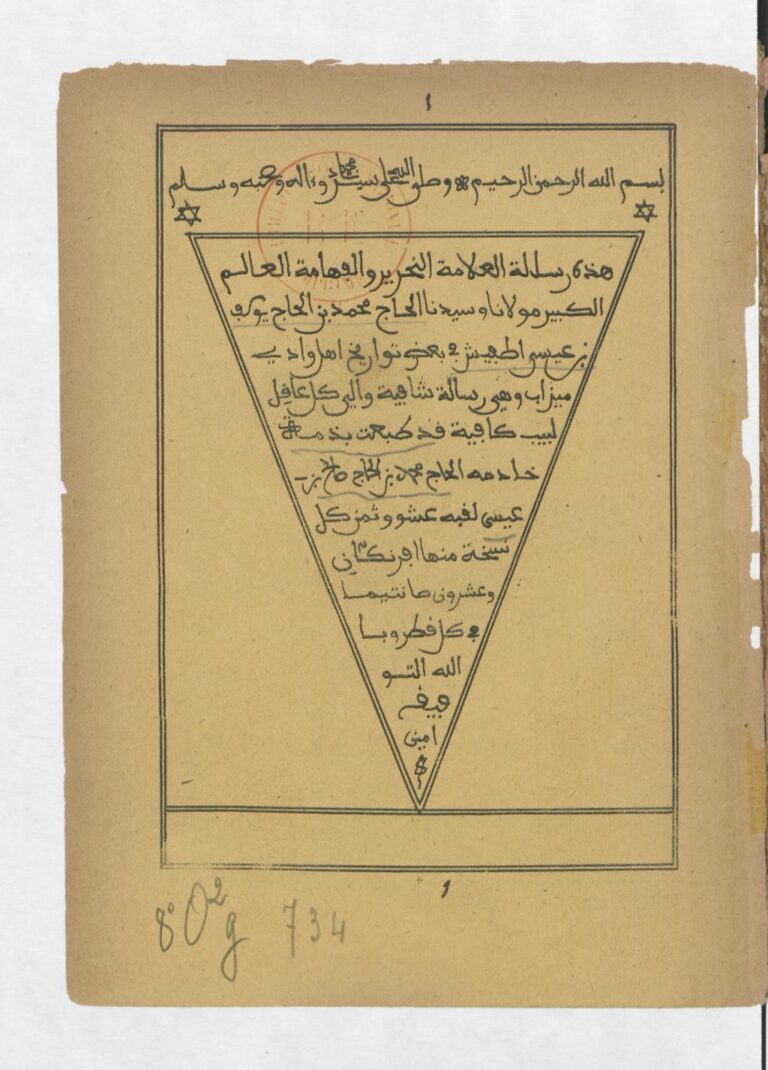 1
بسم الله الرحمن الرحيم وصلى الله على سيدنا محمد وءاله وصحبه وسلم
هذه رسالة العلامة النحرير والفهامة العالم
الكبير مولانا وسيدنا الحاج محمد بن الحاج يوسف
بن عيسى اطفيش في بعض تواريخ اهل وادي
ميزاب وهي رسالة شافية والى كل عاقل
لبيب كافية قد طبعت بذمة
خادمه الحاج محمد بن الحاج صالح بن
عيسى لقبه عشو وثمن كل
نسخة منها افرنكان
وعشرون صانتيما
في كل قطر وبا
الله التو
فيق
امين
1
8° O²g 734